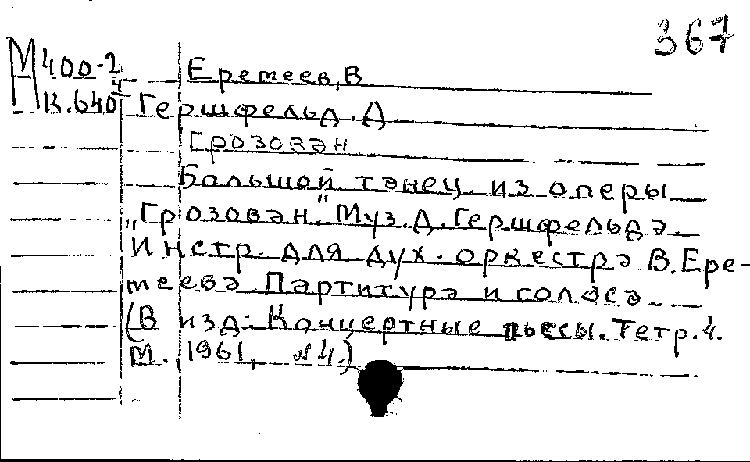 367
М400-2 Еремеев, В
К.640 4 Гершфельд. Д
Грозован
Большой танец из оперы
„Грозован." Муз. Д. Гершфельда.
Инстр. для дух. оркестра В. Ере-
меева. Партитура и голоса.
(В изд: Концертные пьесы. Тетр. 4.
М., 1961, №4.)